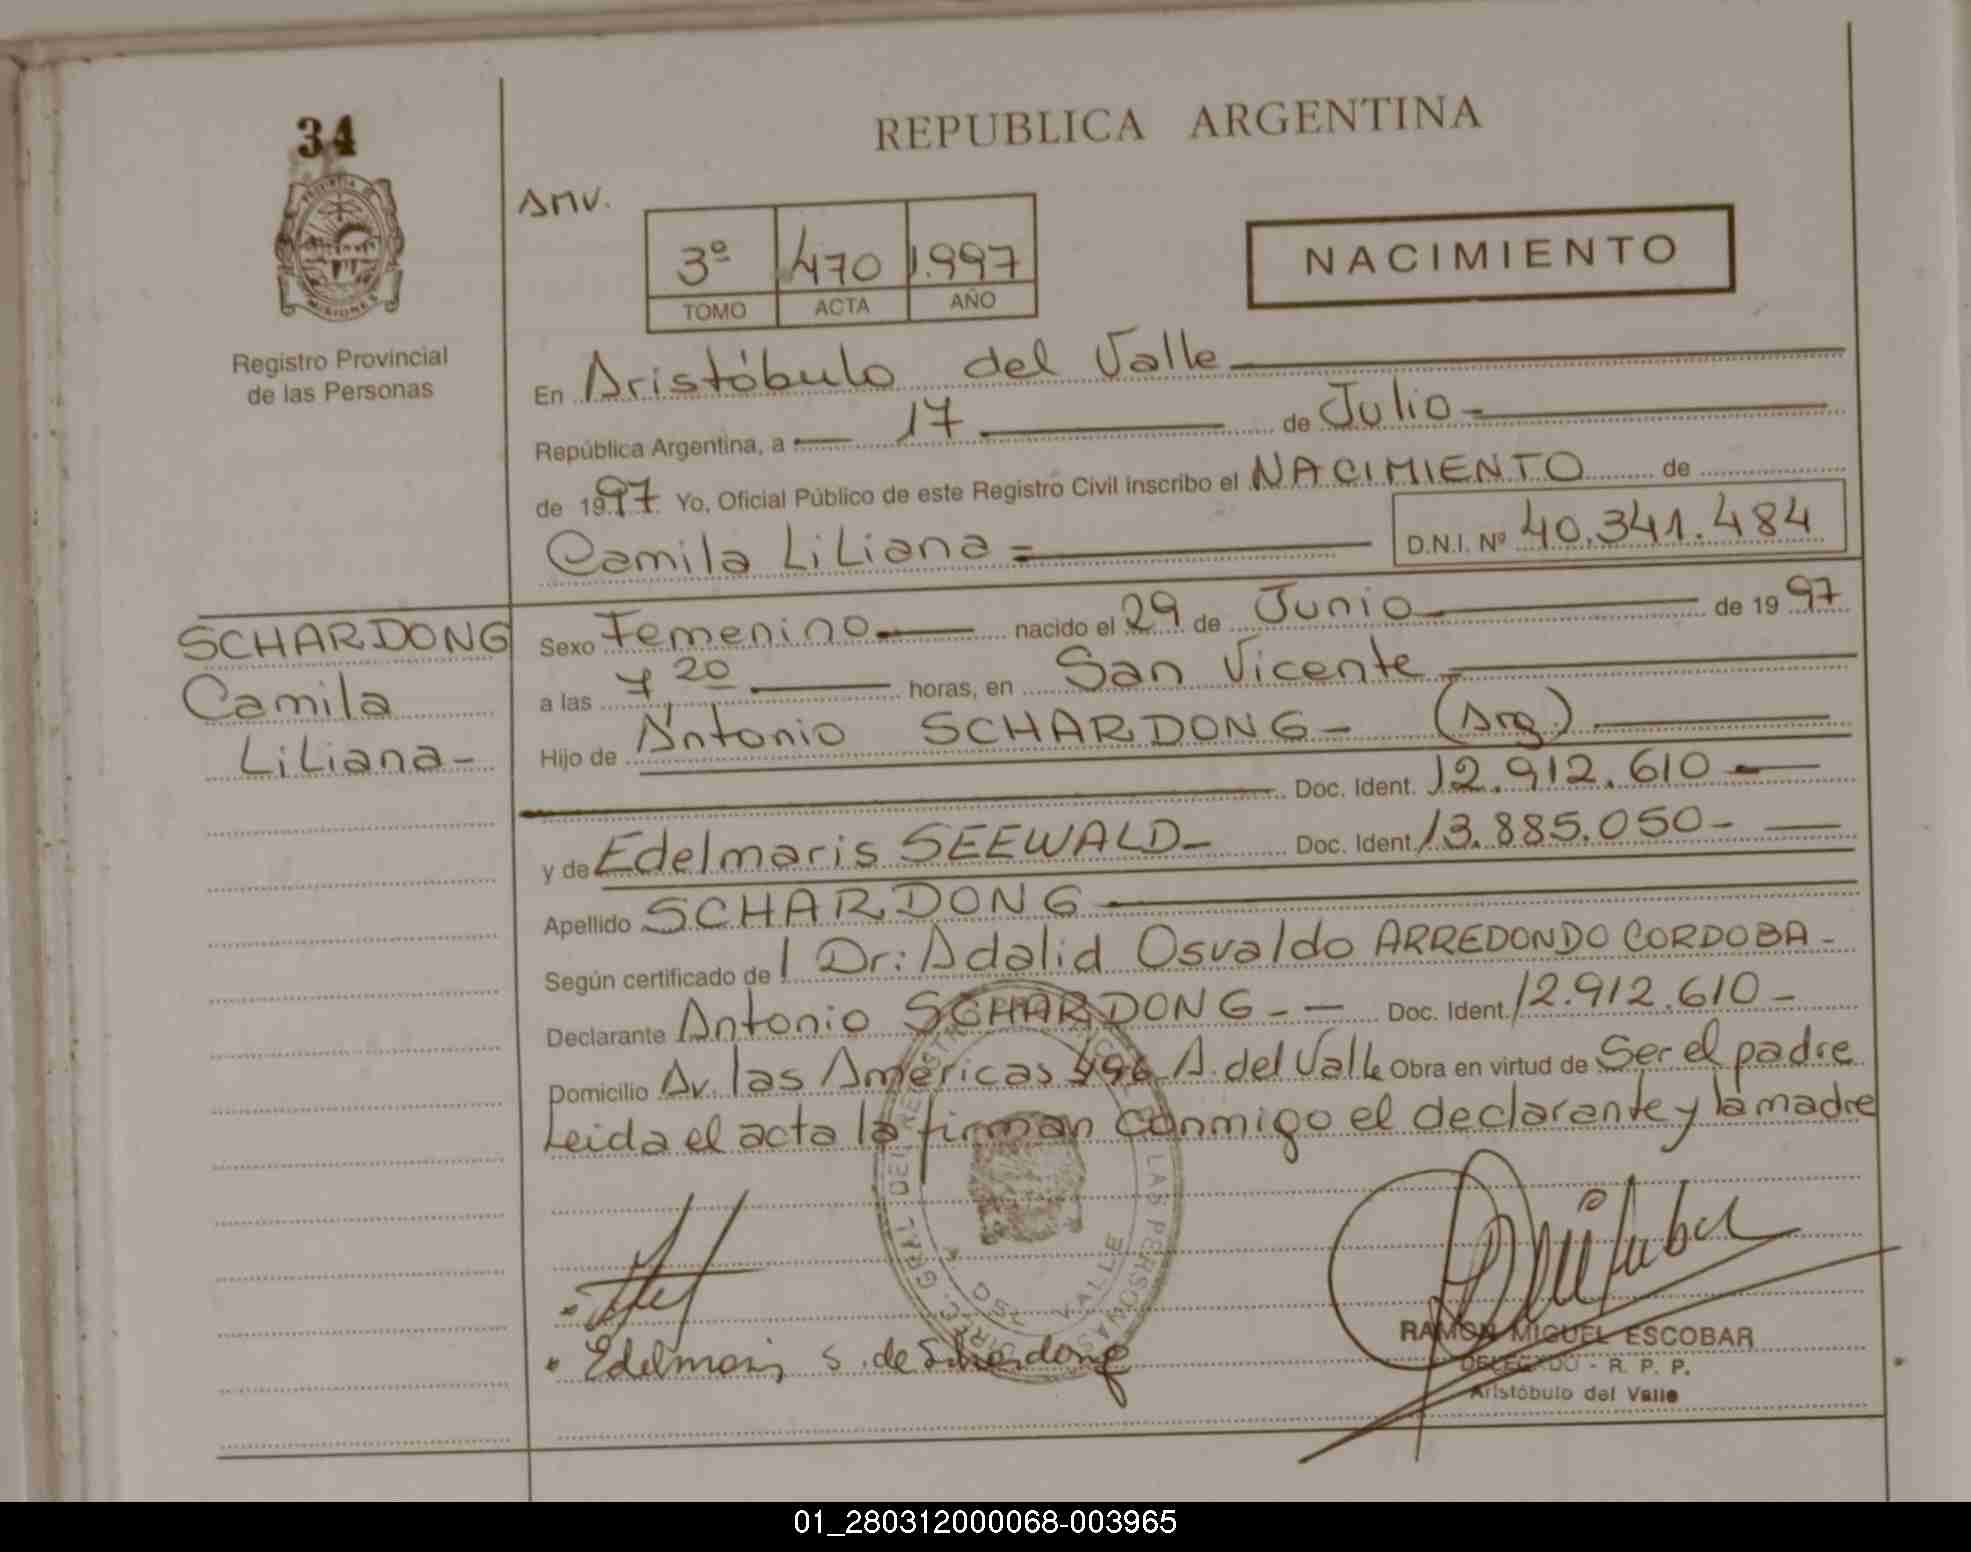 34
REPUBLICA ARGENTINA
PROVINCIA DE
MISIONES
Registro Provincial
de las Personas
3º 470 1.997
TOMO ACTA AÑO
NACIMIENTO
En Aristóbulo del Valle
República Argentina, a 17 de Julio
de 1997 Yo, Oficial Público de este Registro Civil inscribo el NACIMIENTO de
Camila LiLiana D.N.I. Nº 40.341.484
SCHARDONG
Camila
LiLiana
Sexo Femenino nacido el 29 de Junio de 1997
a las 7 20 horas, en San Vicente
Hijo de Antonio SCHARDONG (Arg.)
Doc. Ident. 12.912.610
y de Edelmaris SEEWALD Doc. Ident. 13.885.050
Apellido SCHARDONG
Según certificado de l Dr: Adalid Osvaldo ARREDONDO CORDOBA
Declarante Antonio SCHARDONG Doc. Ident. 12.912.610
Domicilio Av. las Américas 496 A. del Valle Obra en virtud de Ser el padre
Leida el acta la firman conmigo el declarante y la madre
Edelmaris S. de Schardong
RAMON MIGUEL ESCOBAR
DELEGADO - R. P. P.
Aristóbulo del Valle
01_280312000068-003965